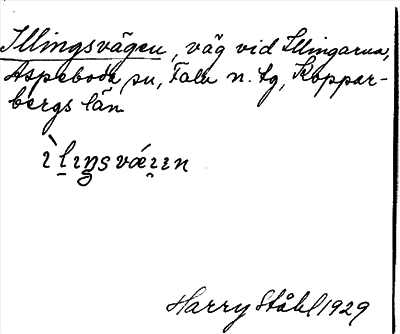 Illingsvägen, väg vid Illingarna,
Aspeboda sn, Falu n. tg, Koppar-
bergs län
ì`l̠ɪŋs væ´ɪ̯ɪn
Harry Ståhl 1929